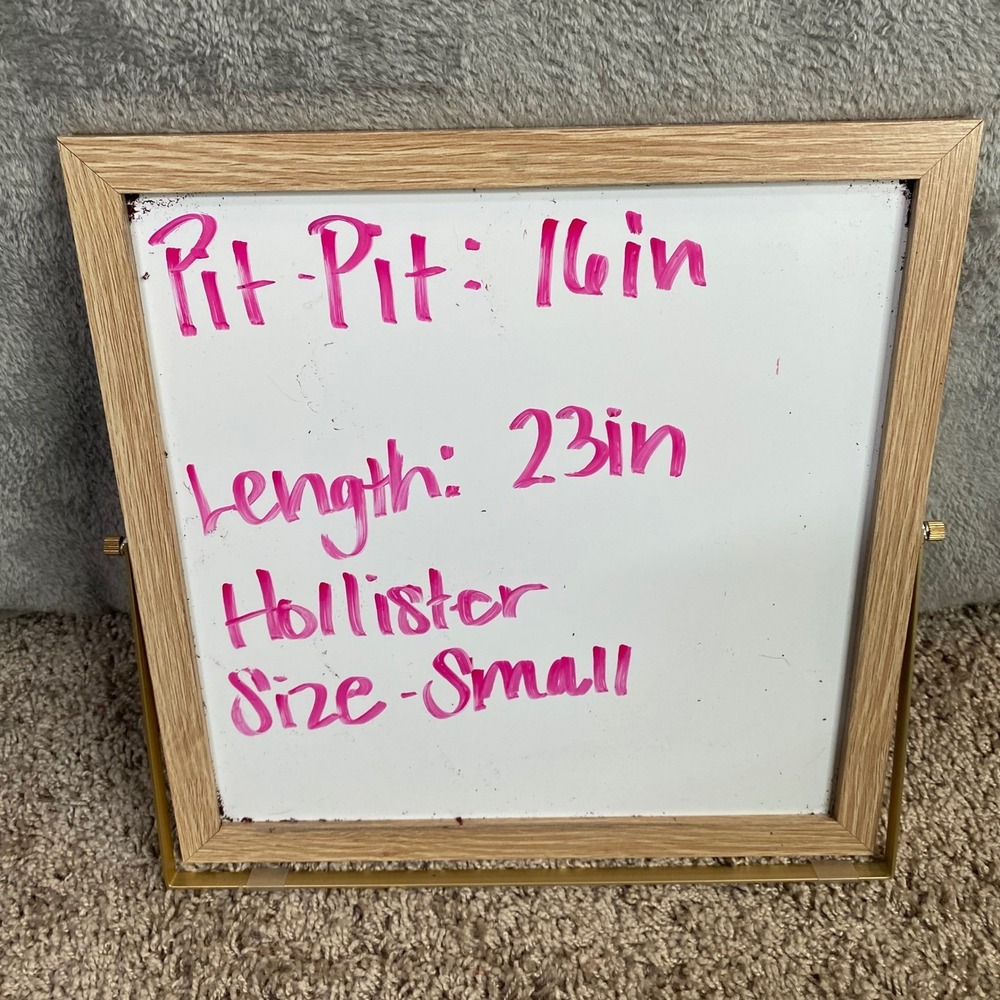 Pit-Pit: 16in
Length: 23in
Hollister
Size-Small